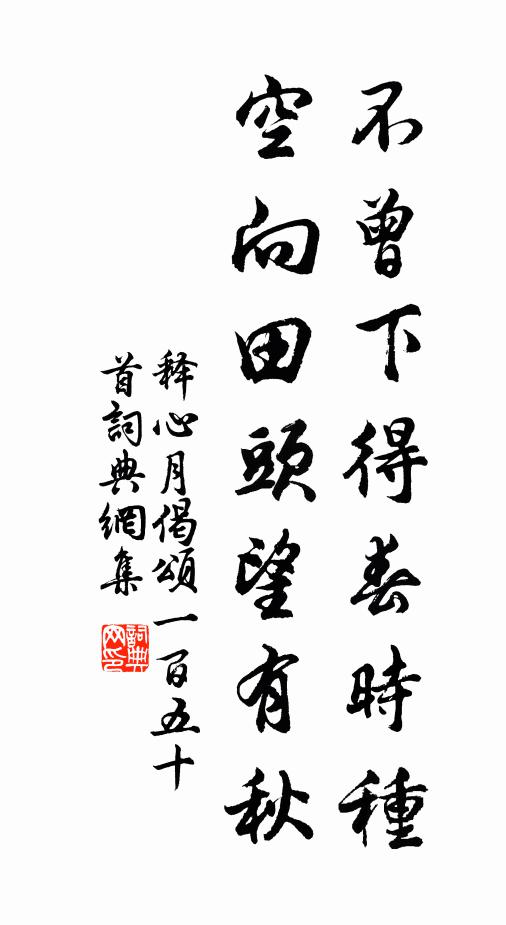 不曾下得春時種
空向田頭望有秋
释心月偈頌一百五十
首詞典網集
詞典
网印